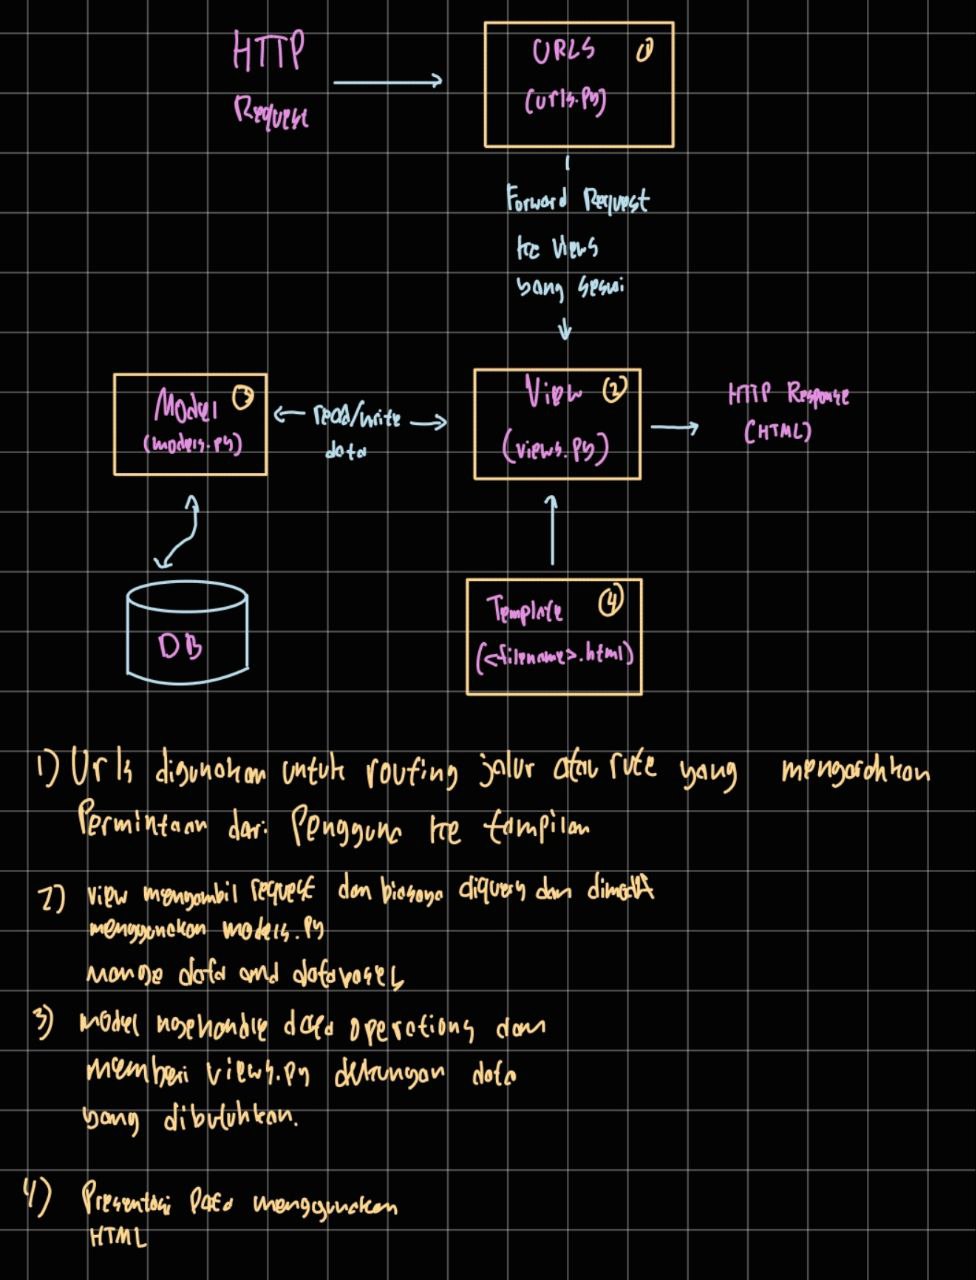 HTTP
Request
URLS 1
(urls.py)
Forward Request
ke views
yang sesuai
Model 3
(models.py)
read/write
data
View 2
(views.py)
HTTP Response
(HTML)
DB
Template 4
(<filename>.html)
1) Urls digunakan untuk routing jalur atau rute yang mengarahkan
Permintaan dari Pengguna ke tampilan
2) view mengambil request dan biasaya diquery dan
menggunakan models.py
data and databases
3) model data operations dan
memberi views.py dukungan data
yang dibutuhkan.
4) Presentasi Data menggunakan
HTML